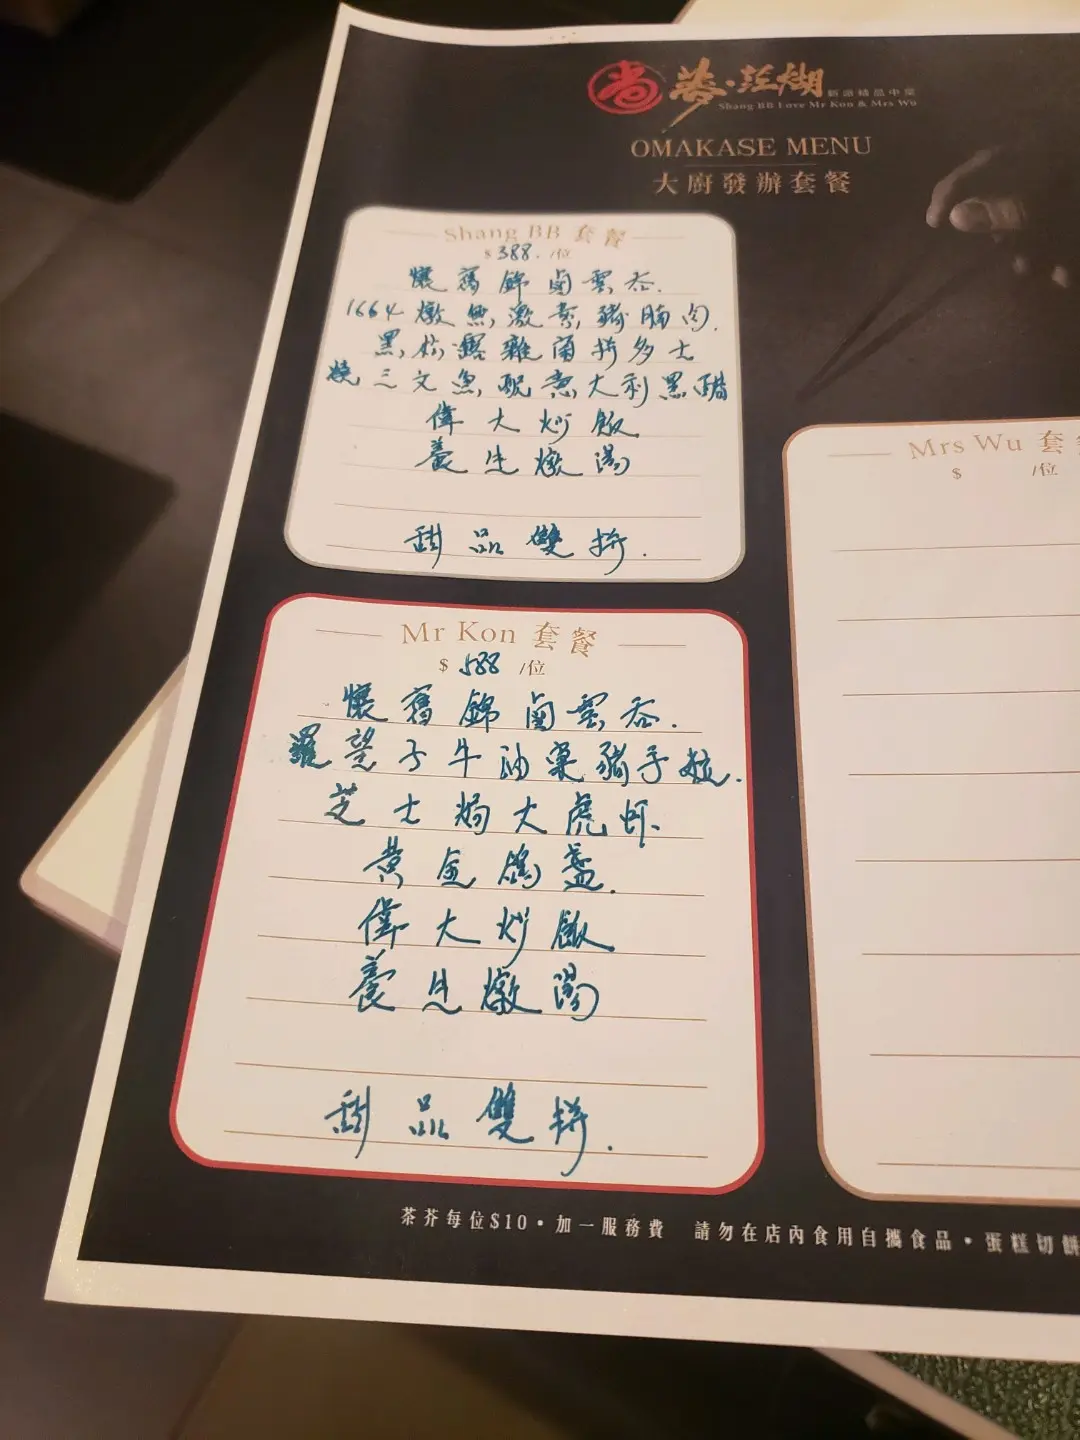 尚 夢·江湖 新派精品中菜
Shang BB Love Mr Kon & Mrs Wu
OMAKASE MENU
大廚發辦套餐
Shang BB 套餐
$ 388. /位
懷舊錦鹵雲吞.
1664燉無激素豬腩肉.
黑松露雜菌拼多士
燒三文魚配意大利黑醋
偉大炒飯
養生燉湯
甜品雙拼.
Mr Kon 套餐
$ 588 /位
懷舊錦鹵雲吞.
羅望子牛油菓豬手粒.
芝士焗大虎蝦.
黃金鴿盞.
偉大炒飯
養生燉湯
甜品雙拼.
Mrs Wu 套
$ /位
茶芥每位$10•加一服務費 請勿在店內食用自攜食品•蛋糕切餅